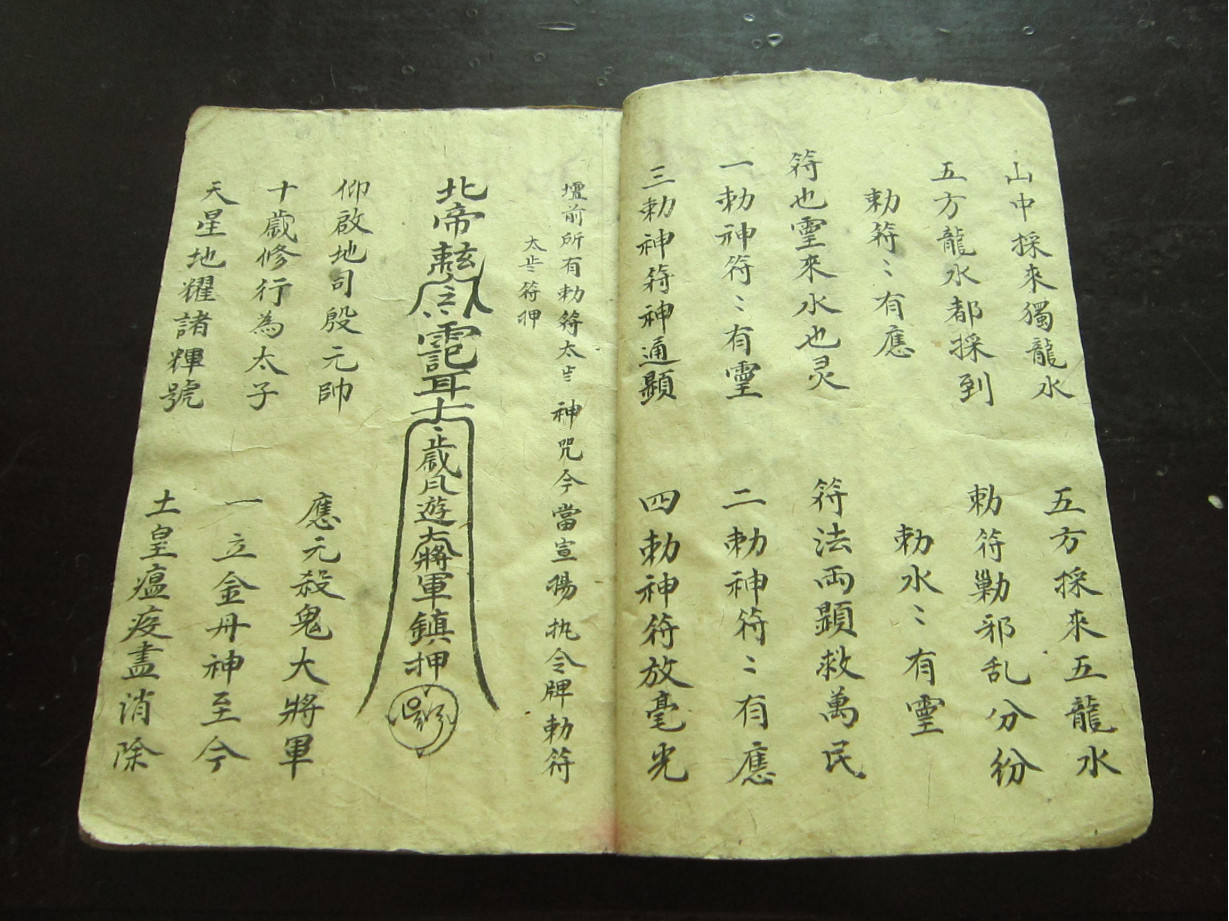 山中採來獨龍水 五方採來五龍水
五方龍水都採到 勅符勦邪乱分紛
勅符〻有應 勅水〻有霊
符也霊來水也灵 符法両顕救萬民
一勅神符〻有霊 二勅神符〻有應
三勅神符神通顕 四勅神符放毫光
壇前所有勅符太歩 神咒今當宣暘执令牌勅符
太歩符押
北帝
歲月遊大將軍鎮押
仰啟地司殷元帥 應元殺鬼大將軍
十歲修行為太子 一立金丹神至今
天星地耀諸輝號 土皇瘟疫盡消除